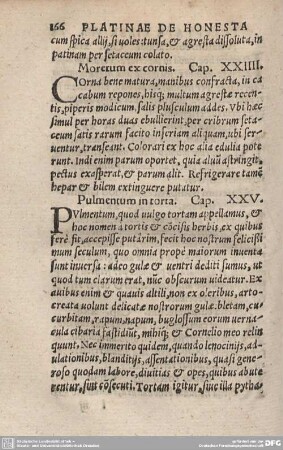 166 PLATINAE DE HONESTA
cum spica allij, si uoles tunsa, & agresta dissoluta, in
patinam per setaceum colato.
Moretum ex cornis. Cap. XXIIII.
Corna bene matura, manibus confracta, in ca
cabum repones, hisq; multum agrestæ recen-
tis, piperis modicum, salis plusculum addes. Vbi hæc
simul per horas duas ebullierint, per cribrum seta-
ceum satis rarum facito in seriam aliquam, ubi ser-
uentur, transeant. Colorari ex hoc alia edulia pote
runt. Indi enim parum oportet, quia aluũ astringit,
pectus exasperat, & parum alit. Refrigerare tamẽ
hepar & bilem extinguere putatur.
Pulmentum in torta. Cap. XXV.
Pulmentum, quod uulgo tortam appellamus, &
hoc nomen a tortis & cõcisis herbis, ex quibus
ferè fit, accepisse putàrim, fecit hoc nostrum felicißi
mum seculum, quo omnia propè maiorum inuenta
sunt inuersa: adeo gulæ & uentri dediti sumus, ut
quod tum clarum erat, nũc obscurum uideatur. Ex
auibus enim & quauis altili, non ex oleribus, arto-
creata uolunt delicatæ nostrorum gulæ. bletam, cu
curbitam, rapum, napum, buglossum eorum uerna-
cula cibaria fastidiũt, mihiq; & Cornelio meo relin
quunt. Nec immerito quidem, quando lenocinijs, ad-
ulationibus, blanditijs, assentationibus, quasi gene-
roso quodam labore, diuitias & opes, quibus abute
rentur, sint cõsecuti. Tortam igitur, siue illa pytha-